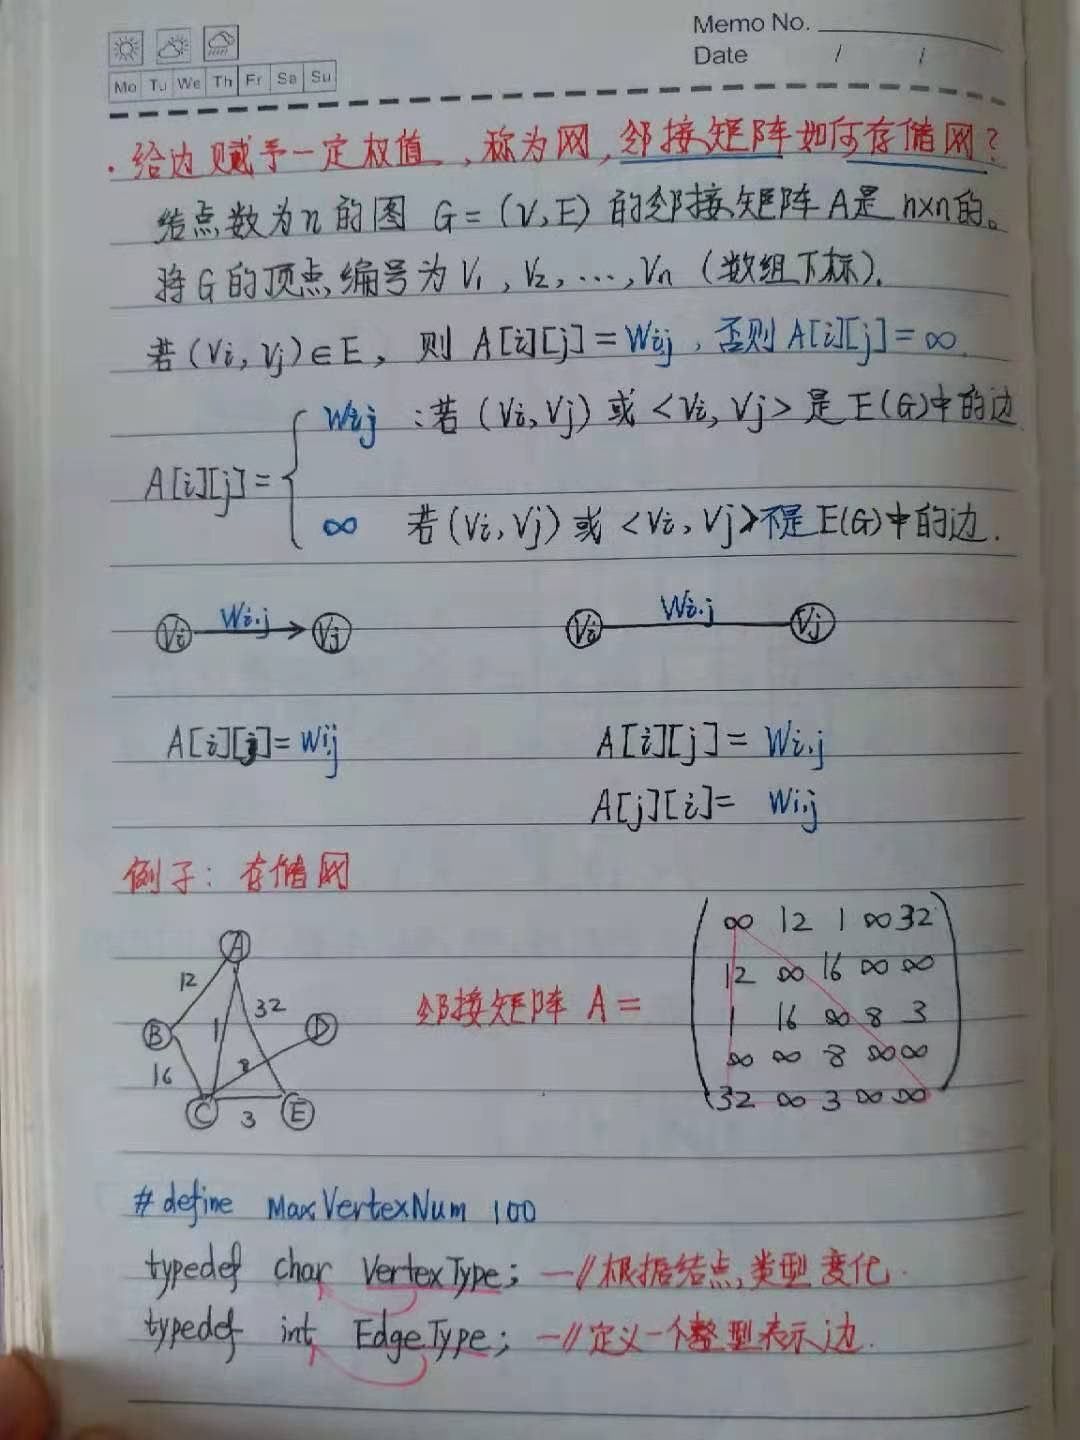 Memo No.
Date / /
Mo Tu We Th Fr Sa Su
·给边赋予一定权值,称为网,邻接矩阵如何存储网?
结点数为n的图 G=(V,E)的邻接矩阵A是n×n的。
将G的顶点编号为V1,V2,…,Vn(数组下标).
若(Vi,Vj)∈E,则 A[i][j]=Wij,否则A[i][j]=∞.
Wij :若(Vi,Vj)或<Vi,Vj>是E(G)中的边
A[i][j]=
∞ 若(Vi,Vj)或<Vi,Vj>不是E(G)中的边.
Vi Wi.j Vj
Vi Wi.j Vj
A[i][j]=Wij
A[i][j]=Wi.j
A[j][i]=Wi.j
例子:存储网
A
12
32
B
1
D
8
16
C
3
E
邻接矩阵 A=
∞ 12 1 ∞ 32
12 ∞ 16 ∞ ∞
1 16 ∞ 8 3
∞ ∞ 8 ∞ ∞
32 ∞ 3 ∞ ∞
#define MaxVertexNum 100
typedef char VertexType; —//根据结点,类型变化.
typedef int EdgeType; —//定义一个整型表示边.